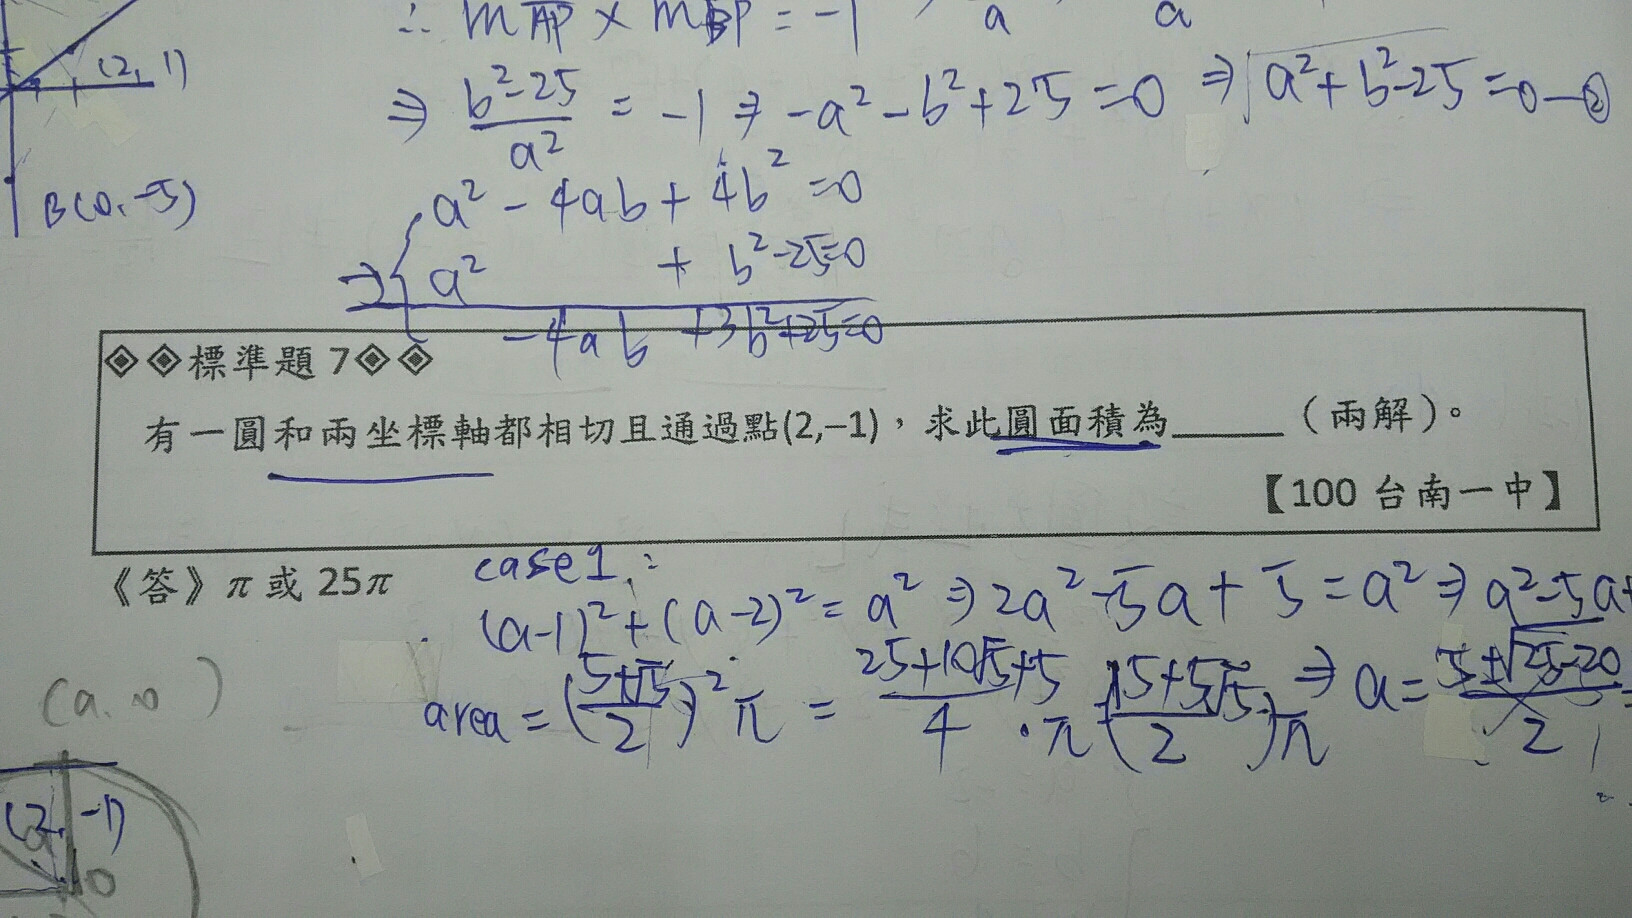 ∴ m AP × m BP = -1 , a a
(2, 1)
⇒ b²-25 / a² = -1 ⇒ -a² - b² + 25 = 0 ⇒ a² + b² - 25 = 0 —②
B(0, -5)
a² - 4ab + 4b² = 0
⇒ a² + b² - 25 = 0
-4ab + 3b² + 25 = 0
◈◈標準題 7◈◈
有一圓和兩坐標軸都相切且通過點(2,−1)，求此圓面積為_____（兩解）。
【100 台南一中】
《答》π 或 25π
case 1 :
(a-1)² + (a-2)² = a² ⇒ 2a² - 5a + 5 = a² ⇒ a² - 5a+
area = (5+√5 / 2)² π = 25+10√5+5 / 4 · π (15+5√5 / 2) π ⇒ a = 5±√25-20 / 2 =
(a, 0)
(2, -1)